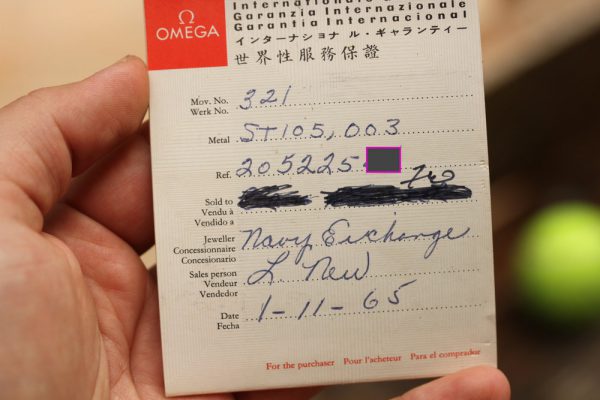 Ω
OMEGA
Internationale
Garanzia Internazionale
Garantia Internacional
インターナショナル・ギャランティー
世界性服務保證
Mov. No. 321
Werk No.
Metal ST105,003
Ref. 2052254
Sold to
Vendu à
Vendido a
Jeweller Navy Exchange
Concessionnaire
Concesionario
Sales person L New
Vendeur
Vendedor
Date 1-11-65
Fecha
For the purchaser Pour l'acheteur Para el comprador